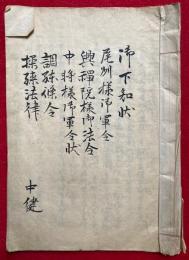 御下知状
尾州様御軍令
興禅院様御法令
中将様御軍令状
調練條令
操練法律
中健